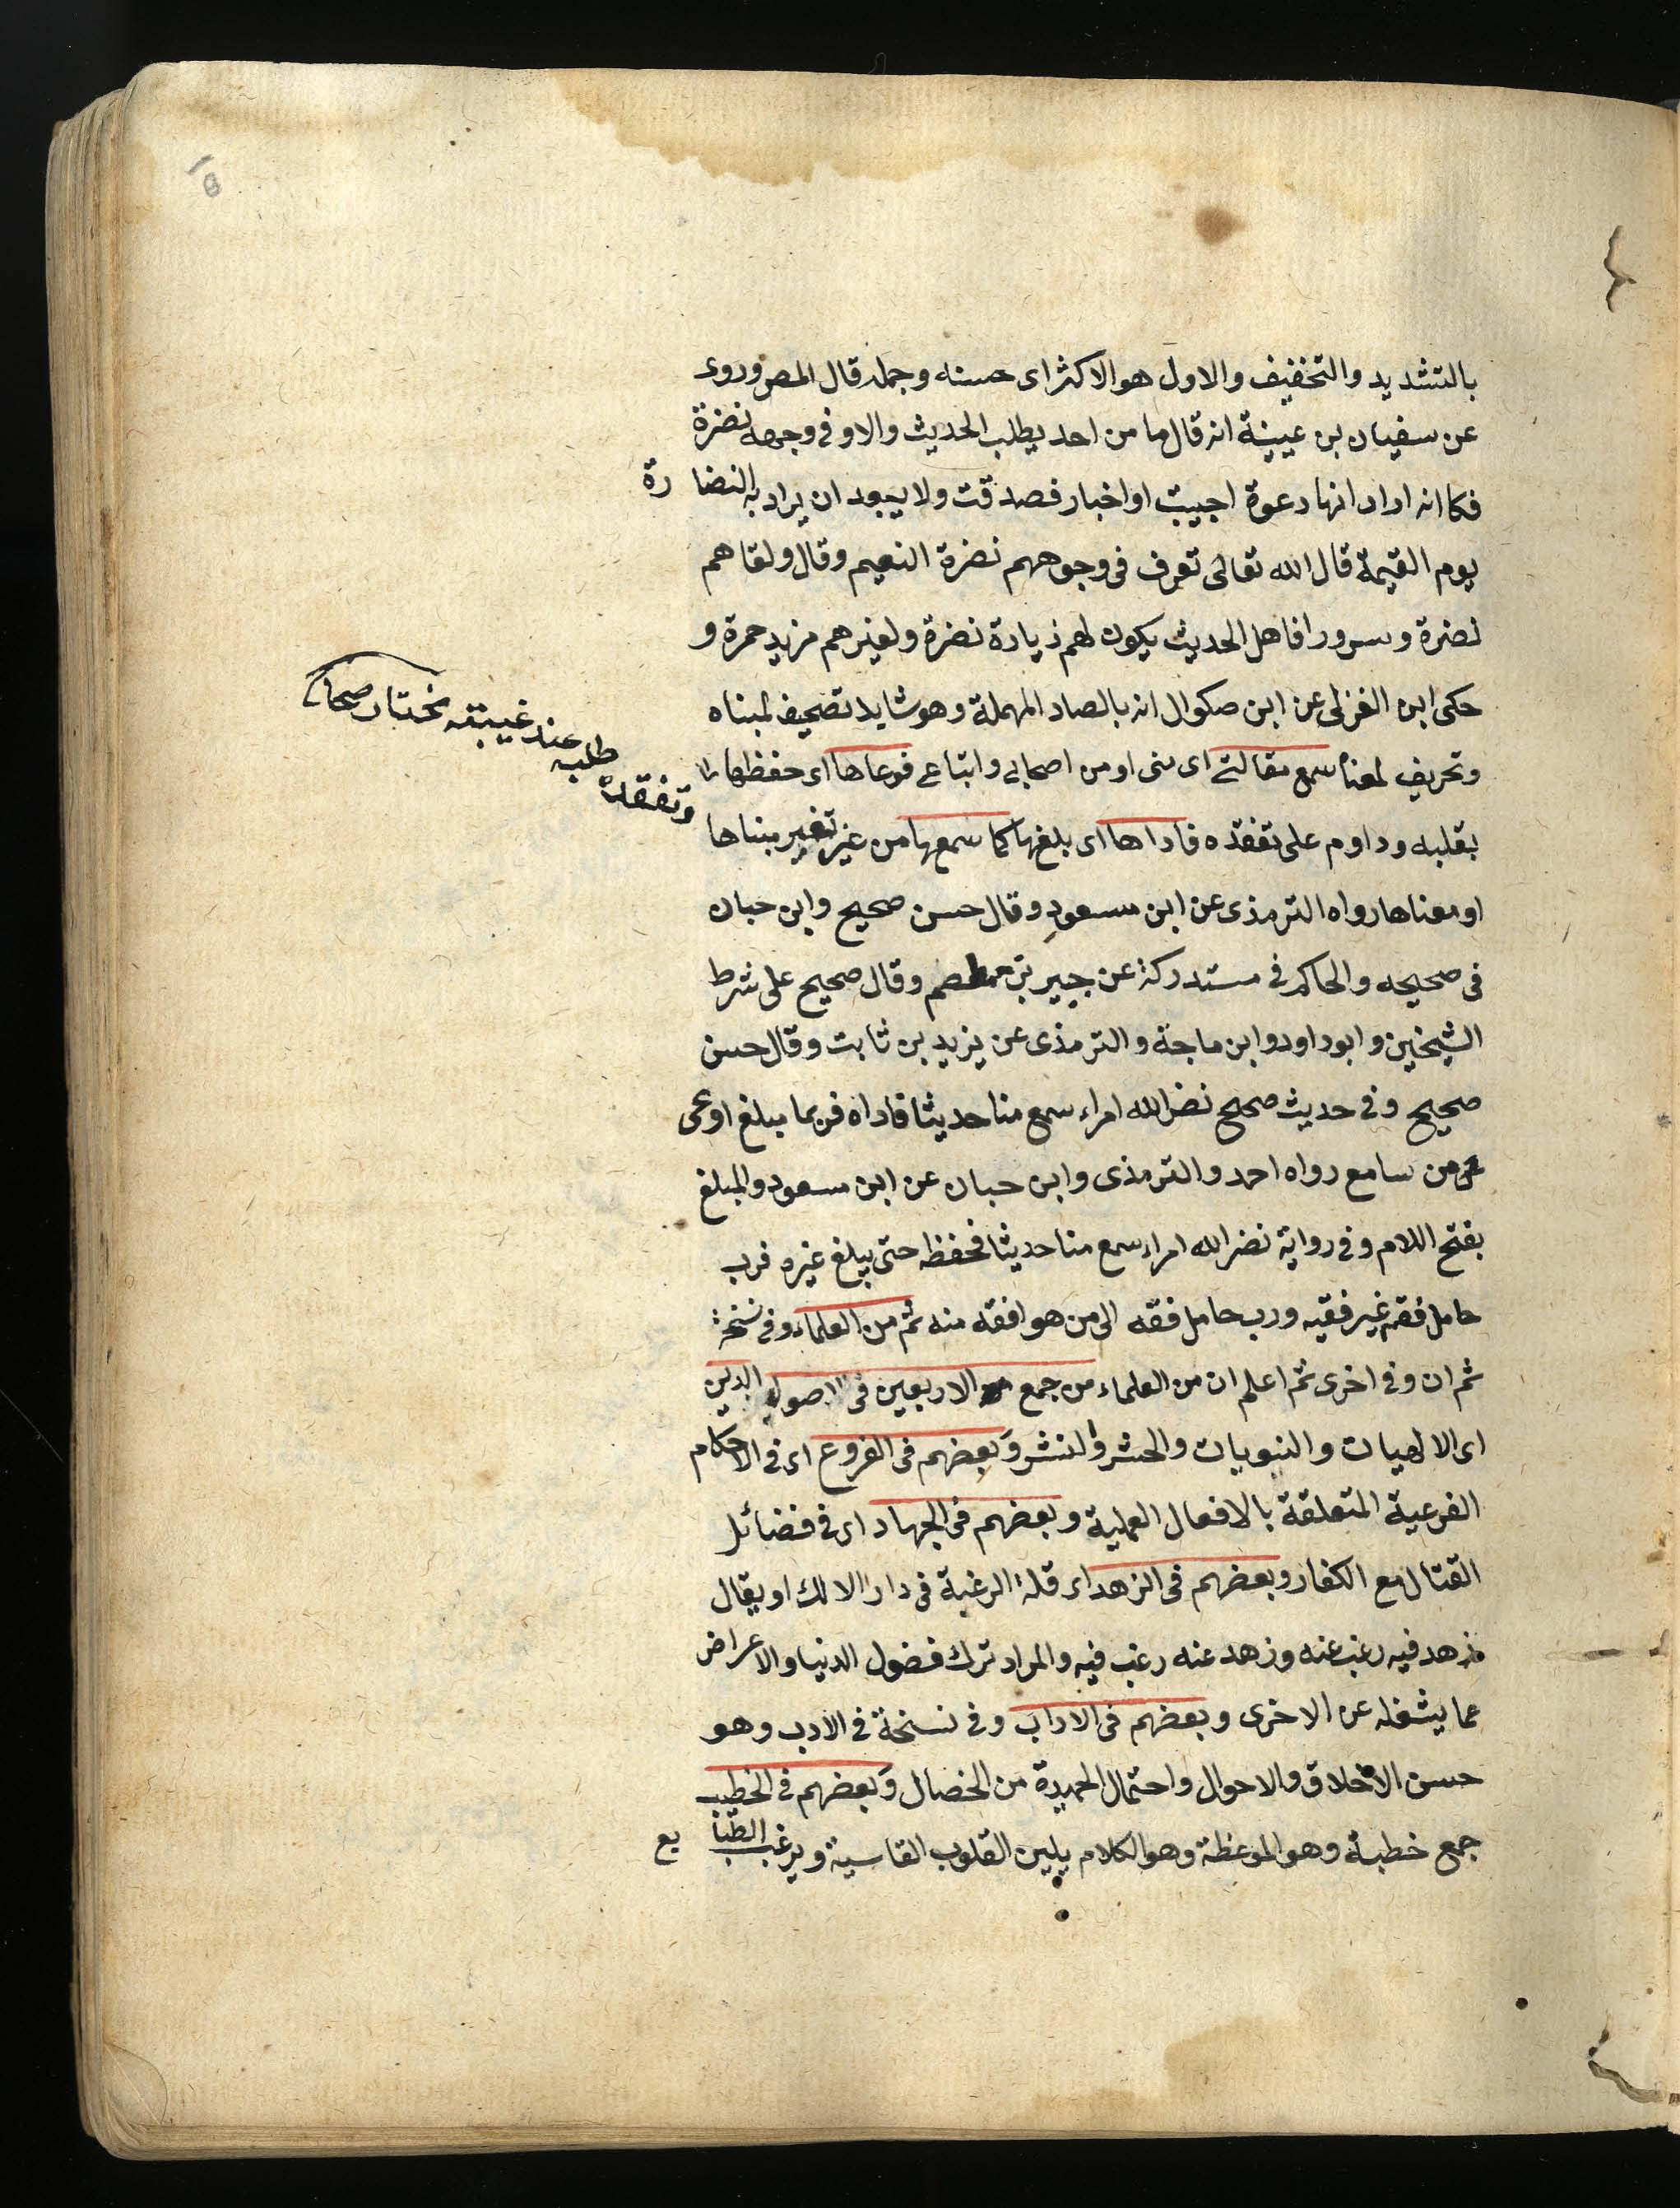 بالتشديد والتخفيف والاول هو الاكثر اى حسنه وجمله قال المص وروى
عن سفيان بن عيينة انه قال ما من احد يطلب الحديث والا وفى وجهه نضرة
فكاانه اراد انها دعوة اجيبت او اخبار فصدقت ولا يبعد ان يراد به النضارة
يوم القيمة قال الله تعالى تعرف فى وجوههم نضرة النعيم وقال ولقاهم
نضرة وسرورا فاهل الحديث يكون لهم زيادة نضرة ولغيرهم مزيد حمرة و
حكى ابن العربى عن ابن صكوال انه بالصاد المهملة وهو شايد تصحيف لمبناه
وتحريف لمعناه سمع مقالتى اى منى او من اصحابى واتباعى فوعاها اى حفظها
بقلبه وداوم على تفقده فاداها اى بلغها كما سمعها من غير تغيير مبناها
او معناها رواه الترمذى عن ابن مسعود وقال حسن صحيح وابن حبان
فى صحيحه والحاكم فى مستدركه عن جبير بن مطعم وقال صحيح على شرط
الشيخين وابو داود وابن ماجة والترمذى عن يزيد بن ثابت وقال حسن
صحيح وفى حديث صحيح نضر الله امراء سمع منا حديثا فاداه فربما مبلغ اوعى
من سامع رواه احمد والترمذى وابن حبان عن ابن مسعود والمبلغ
بفتح اللام وفى رواية نضر الله امراء سمع منا حديثا فحفظه حتى يبلغ غيره فرب
حامل فقه غير فقيه ورب حامل فقه الى من هو افقه منه ثم من العلماء وفى نسخة
ثم ان وفى اخرى ثم اعلم ان من العلماء من جمع الاربعين فى اصول الدين
اى الالهيات والنبويات والحشر والنشر وبعضهم فى الفروع اى فى الاحكام
الفرعية المتعلقة بالافعال العملية وبعضهم فى الجهاد اى فى فضائل
القتال مع الكفار وبعضهم فى الزهد اى قلة الرغبة فى دار الا لك او يقال
زهد فيه رغب عنه وزهد عنه رغب فيه والمراد ترك فضول الدنيا والاعراض
عما يشغله عن الاخرى وبعضهم فى الاداب وفى نسخة فى الادب وهو
حسن الاخلاق والاحوال واحتمال الحميدة من الخصال وبعضهم فى الخطب
جمع خطبة وهو الموعظة وهو الكلام يلين القلوب القاسية ويرغب الطبايع
وتفقده
طلبه عند غيبته مختار صحاح